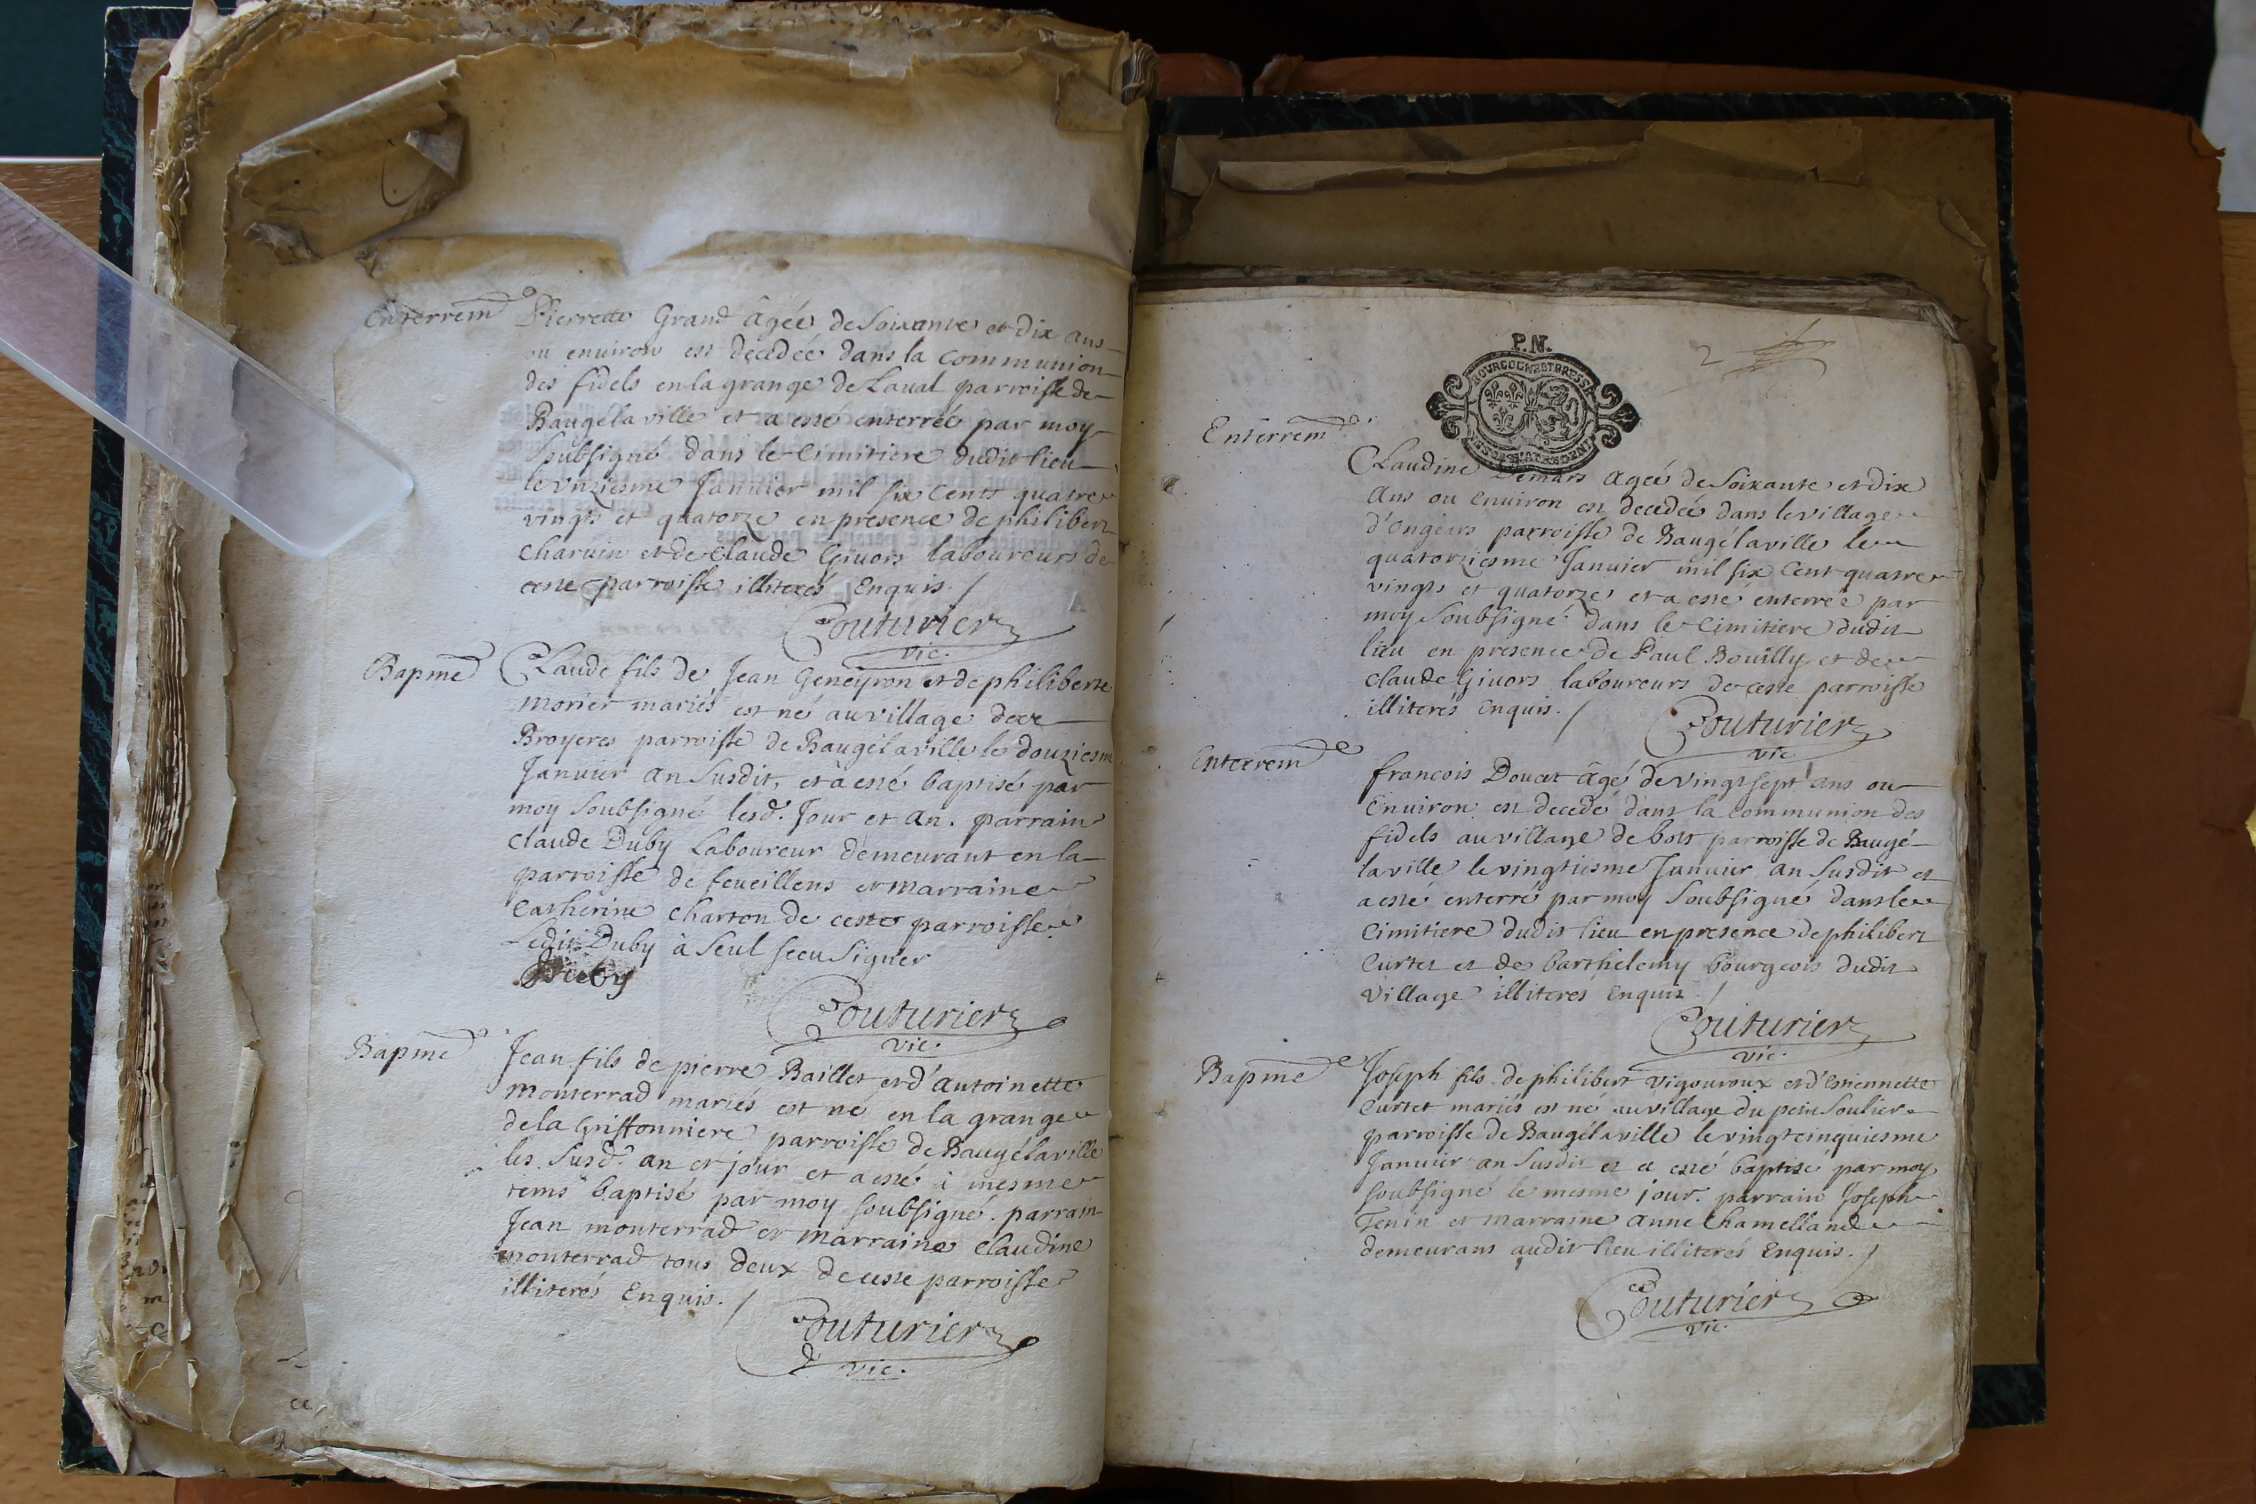 Enterrem
Pierrette Grand âgée de Soixante et dix ans
ou environ est decedée dans la communion
des fidels en la grange de Laval parroisse de
Baugélaville et a esté enterrée par moy
Soubsigné dans le Cimitiere dudit lieu
le vnziesme Janvier mil six Cents quatre
vingts et quatorze en presence de philibert
Charvin et de Claude Givors laboureurs de
ceste parroisse illiterés Enquis. /
Couturier
vic.
Bapme
Claude fils de Jean Geneyron et de philiberte
morier mariés est né au village de
Broyeres parroisse de Baugélaville le douziesme
Janvier an Susdit, et à esté baptisé par
moy Soubsigné lesd. Jour et an. parrain
Claude Duby Laboureur demeurant en la
parroisse de feueillens et marraine
Catherine Charton de ceste parroisse
Ledit Duby à Seul sceu Signer
Duby
Couturier
vic.
Bapme
Jean fils de pierre Baillet et d'antoinette
monterrad mariés est né en la grange
de la Griffonniere parroisse de Baugélaville
les Susd. an et jour et a esté à mesme
tems baptisé par moy soubsigné. parrain
Jean monterrad et marraine Claudine
monterrad tous deux de ceste parroisse
illiterés Enquis. /
Couturier
vic.
P.N.
2
BOURGOGNE ET BRESSE
Enterrem
Claudine Demars agée de Soixante et dix
Ans ou environ est decedée dans le village
d'Engeurs parroisse de Baugélaville le
quatorziesme Janvier mil six Cent quatre
vingts et quatorze et a esté enterrée par
moy Soubsigné dans le Cimitiere dudit
lieu en presence de Paul Bouilly et de
Claude Givors laboureurs de ceste parroisse
illiterés enquis. /
Couturier
vic
Enterrem
francois Douat âgé de vingt sept ans ou
Environ est decedé dans la communion des
fidels au village de bost parroisse de Baugé-
laville le vingtiesme Janvier an Susdit et
a esté enterré par moy Soubsigné dans le
Cimitiere dudit lieu en presence de philibert
Curtet et de barthelemy bourgeois dudit
Village illiteres Enquis /
Couturier
vic.
Bapme
Joseph fils de philibert Vigouroux et d'Estiennette
Curtet mariés est né au village du petit Soulier
parroisse de Baugélaville le vingtcinquiesme
Janvier an Susdit et a esté baptisé par moy
soubsigné le mesme jour. parrain Joseph
Tenin et marraine anne Chamelland
demeurans audit lieu illiterés Enquis. /
Couturier
vic.